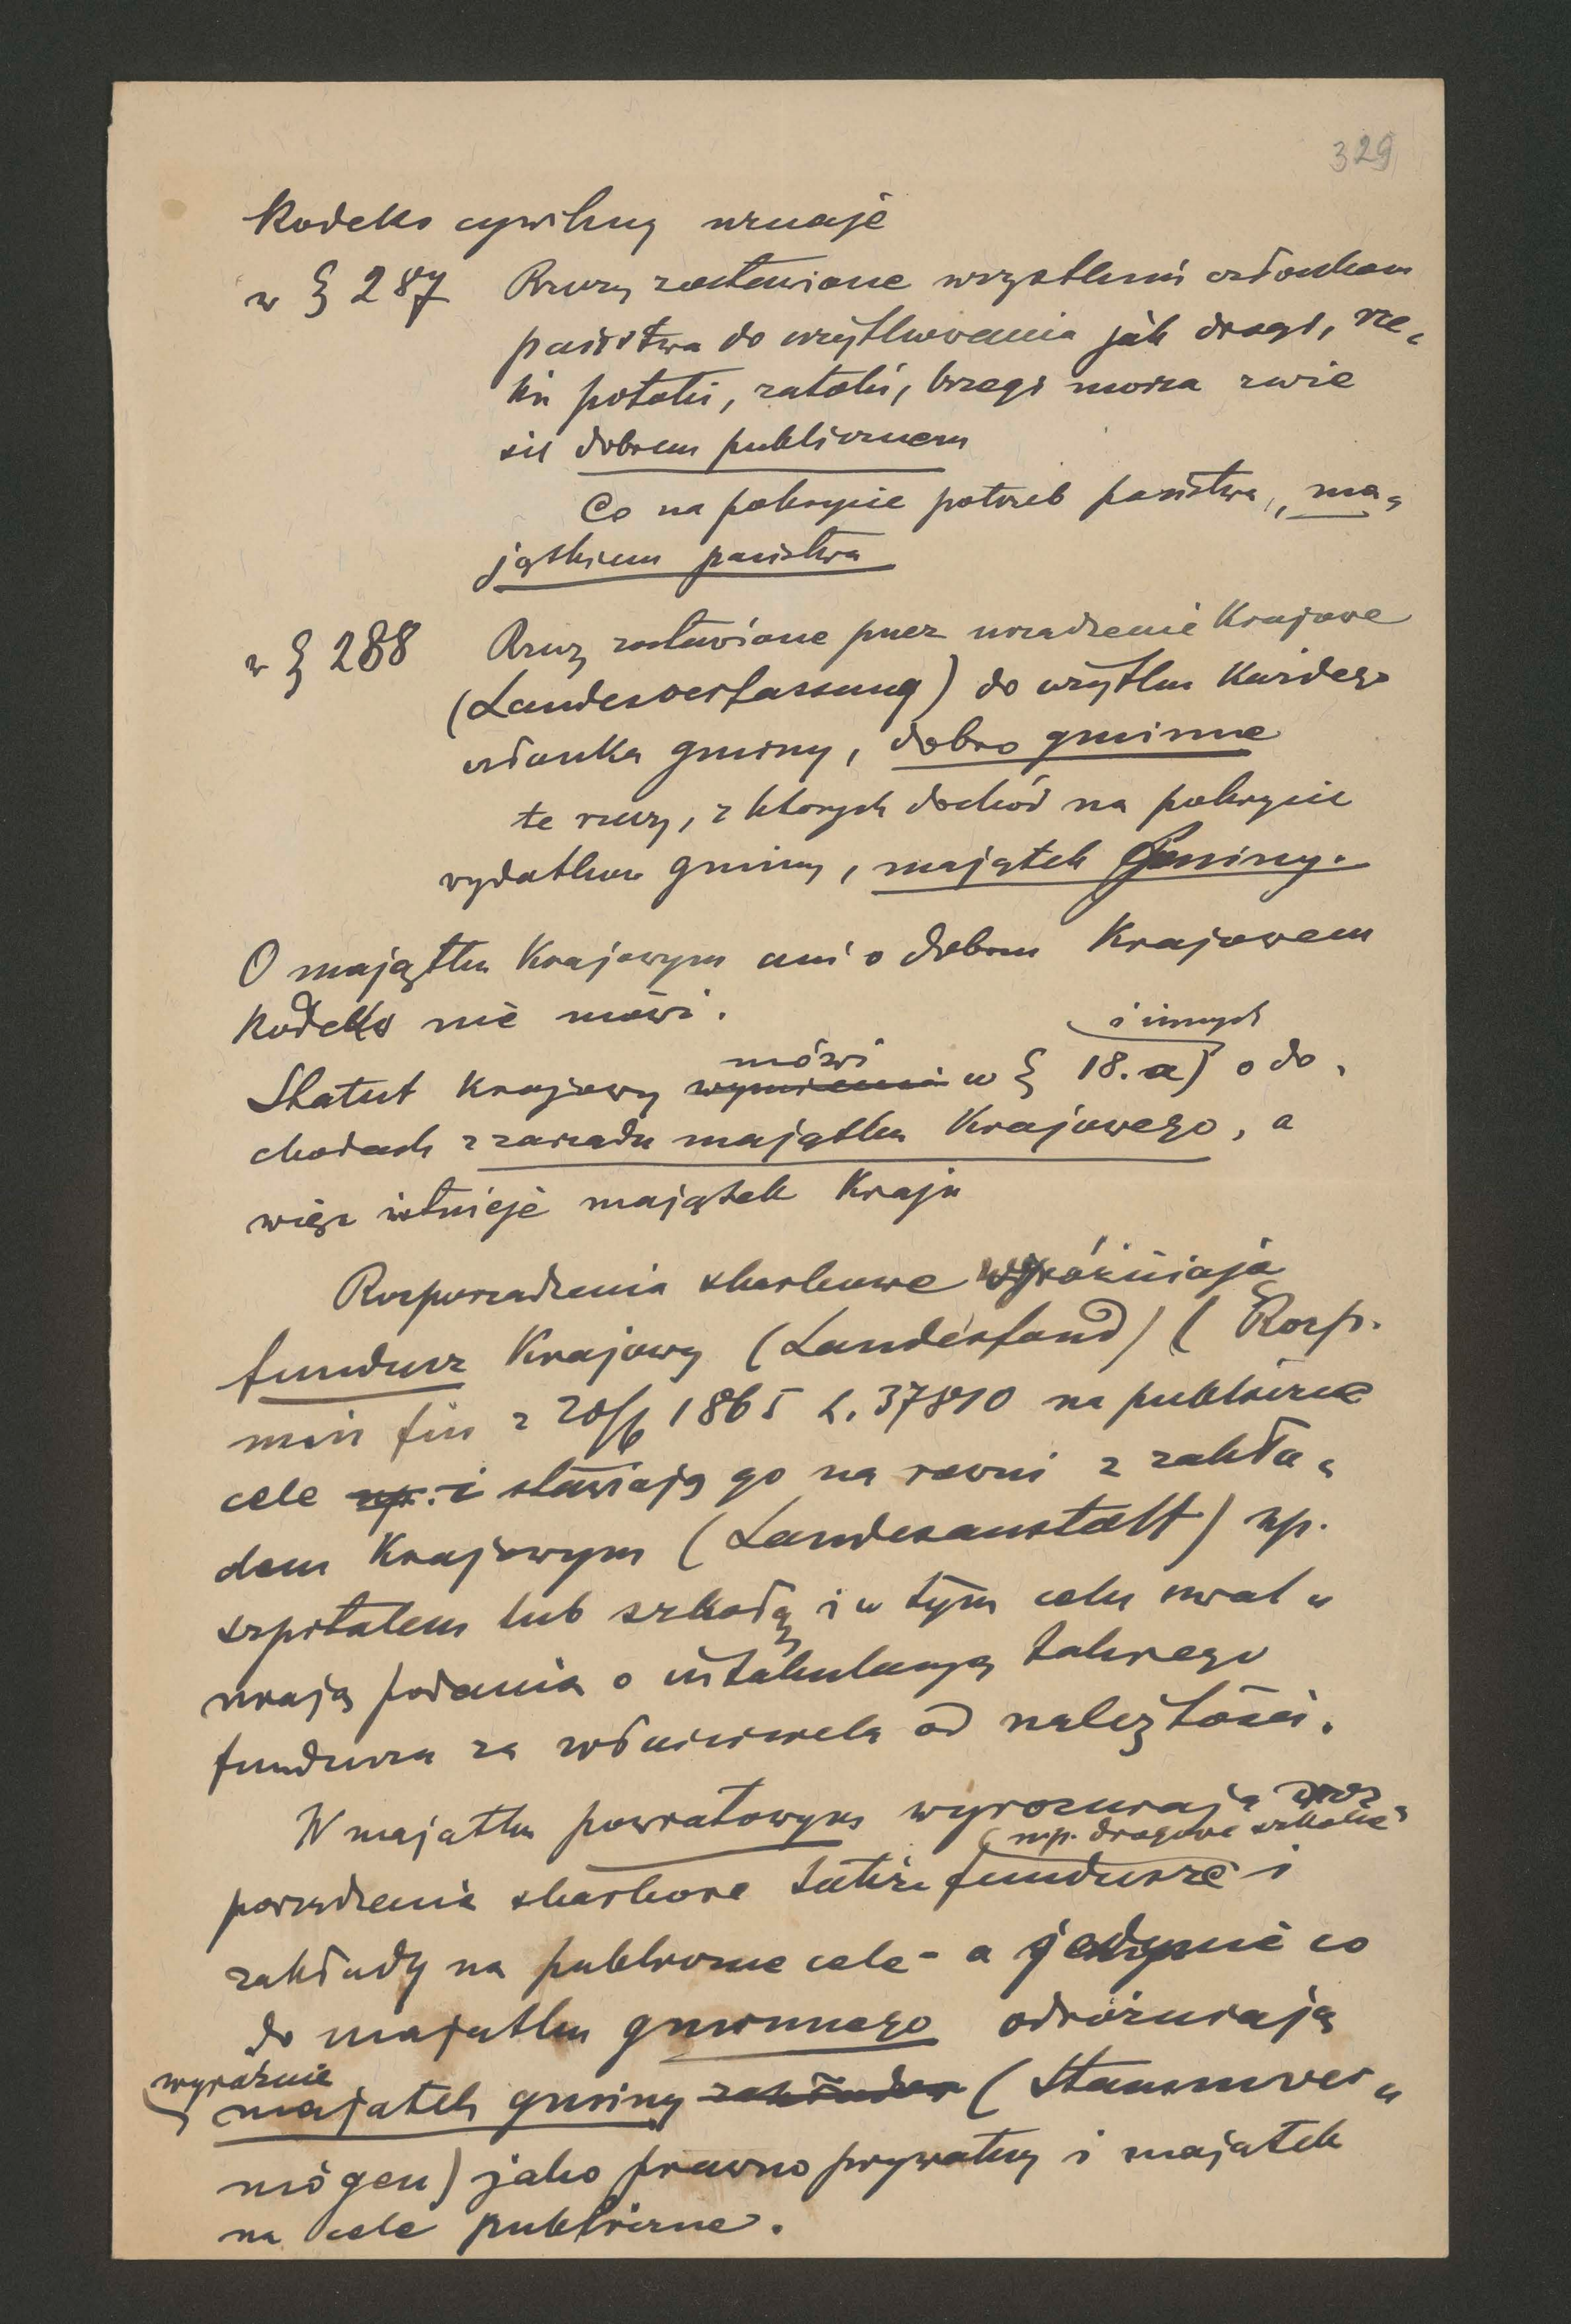 329
Kodeks cywilny uznaje
w § 287 Rzeczy zostawione wszystkim członkom
państwa do użytkowania jak drogi, rze„
ki potoki, zatoki, brzegi morza zwie
się dobrem publicznem
Co na pokrycie potrzeb państwa, „ma„
jątkiem państwa
w § 288 Rzeczy zostawione przez urządzenie Krajowe
(Landesverfassung) do użytku Każdego
członka gminy, dobro gminne
te rzeczy, z których dochód na pokrycie
wydatków gminy, majątek Gminy.
O majątku Krajowym ani o dobru Krajowem
Kodeks nie mówi.
i innych
mówi
Statut Krajowy wymienia w § 18. a) o do„
chodach z zarządu majątku Krajowego, a
więc istnieje majątek Kraju
Rozporządzenia skarbowe wyróżniają
fundusz Krajowy (Landesfond) ( Rozp.
min fin z 20/6 1865 L. 37810 na publiczne
cele np. i stawiają go na równi z zakła„
dem Krajowym (Landesanstalt) np.
szpitalem lub szkołą i w tym celu uwal„
niają podania o intabulacyą takiego
funduszu za  od należytości.
W majątku powiatowym wyrozniają roz„
np. drogowe szkolne
porządzenia skarbowe także fundusze i
zakłady na publiczne cele - a jedynie co
do majątku gminnego odróżniają
wyraźnie
majątek gminy zakładów (Stammver„
mögen) jako prawno prywatny i majątek
na cele publiczne.